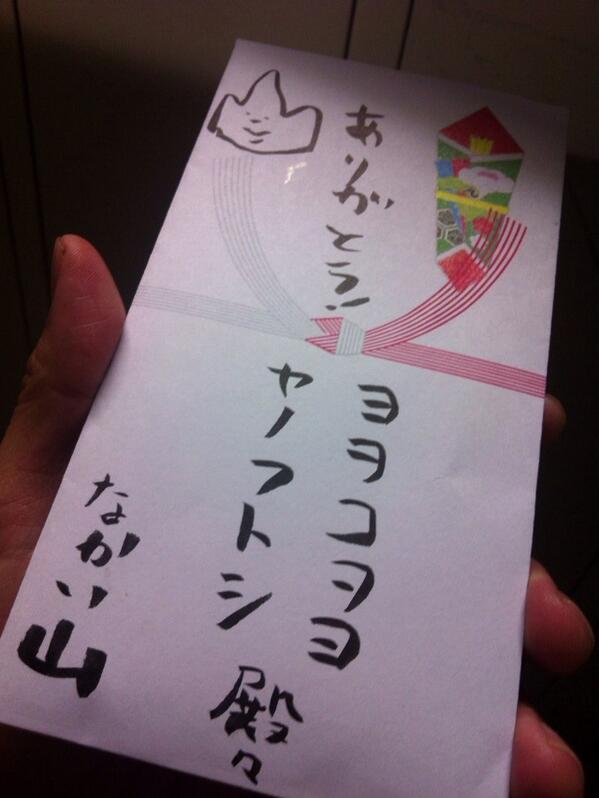 ありがとう!
ヨヲコヲヨ
ヤノフトシ
殿々
なかい山